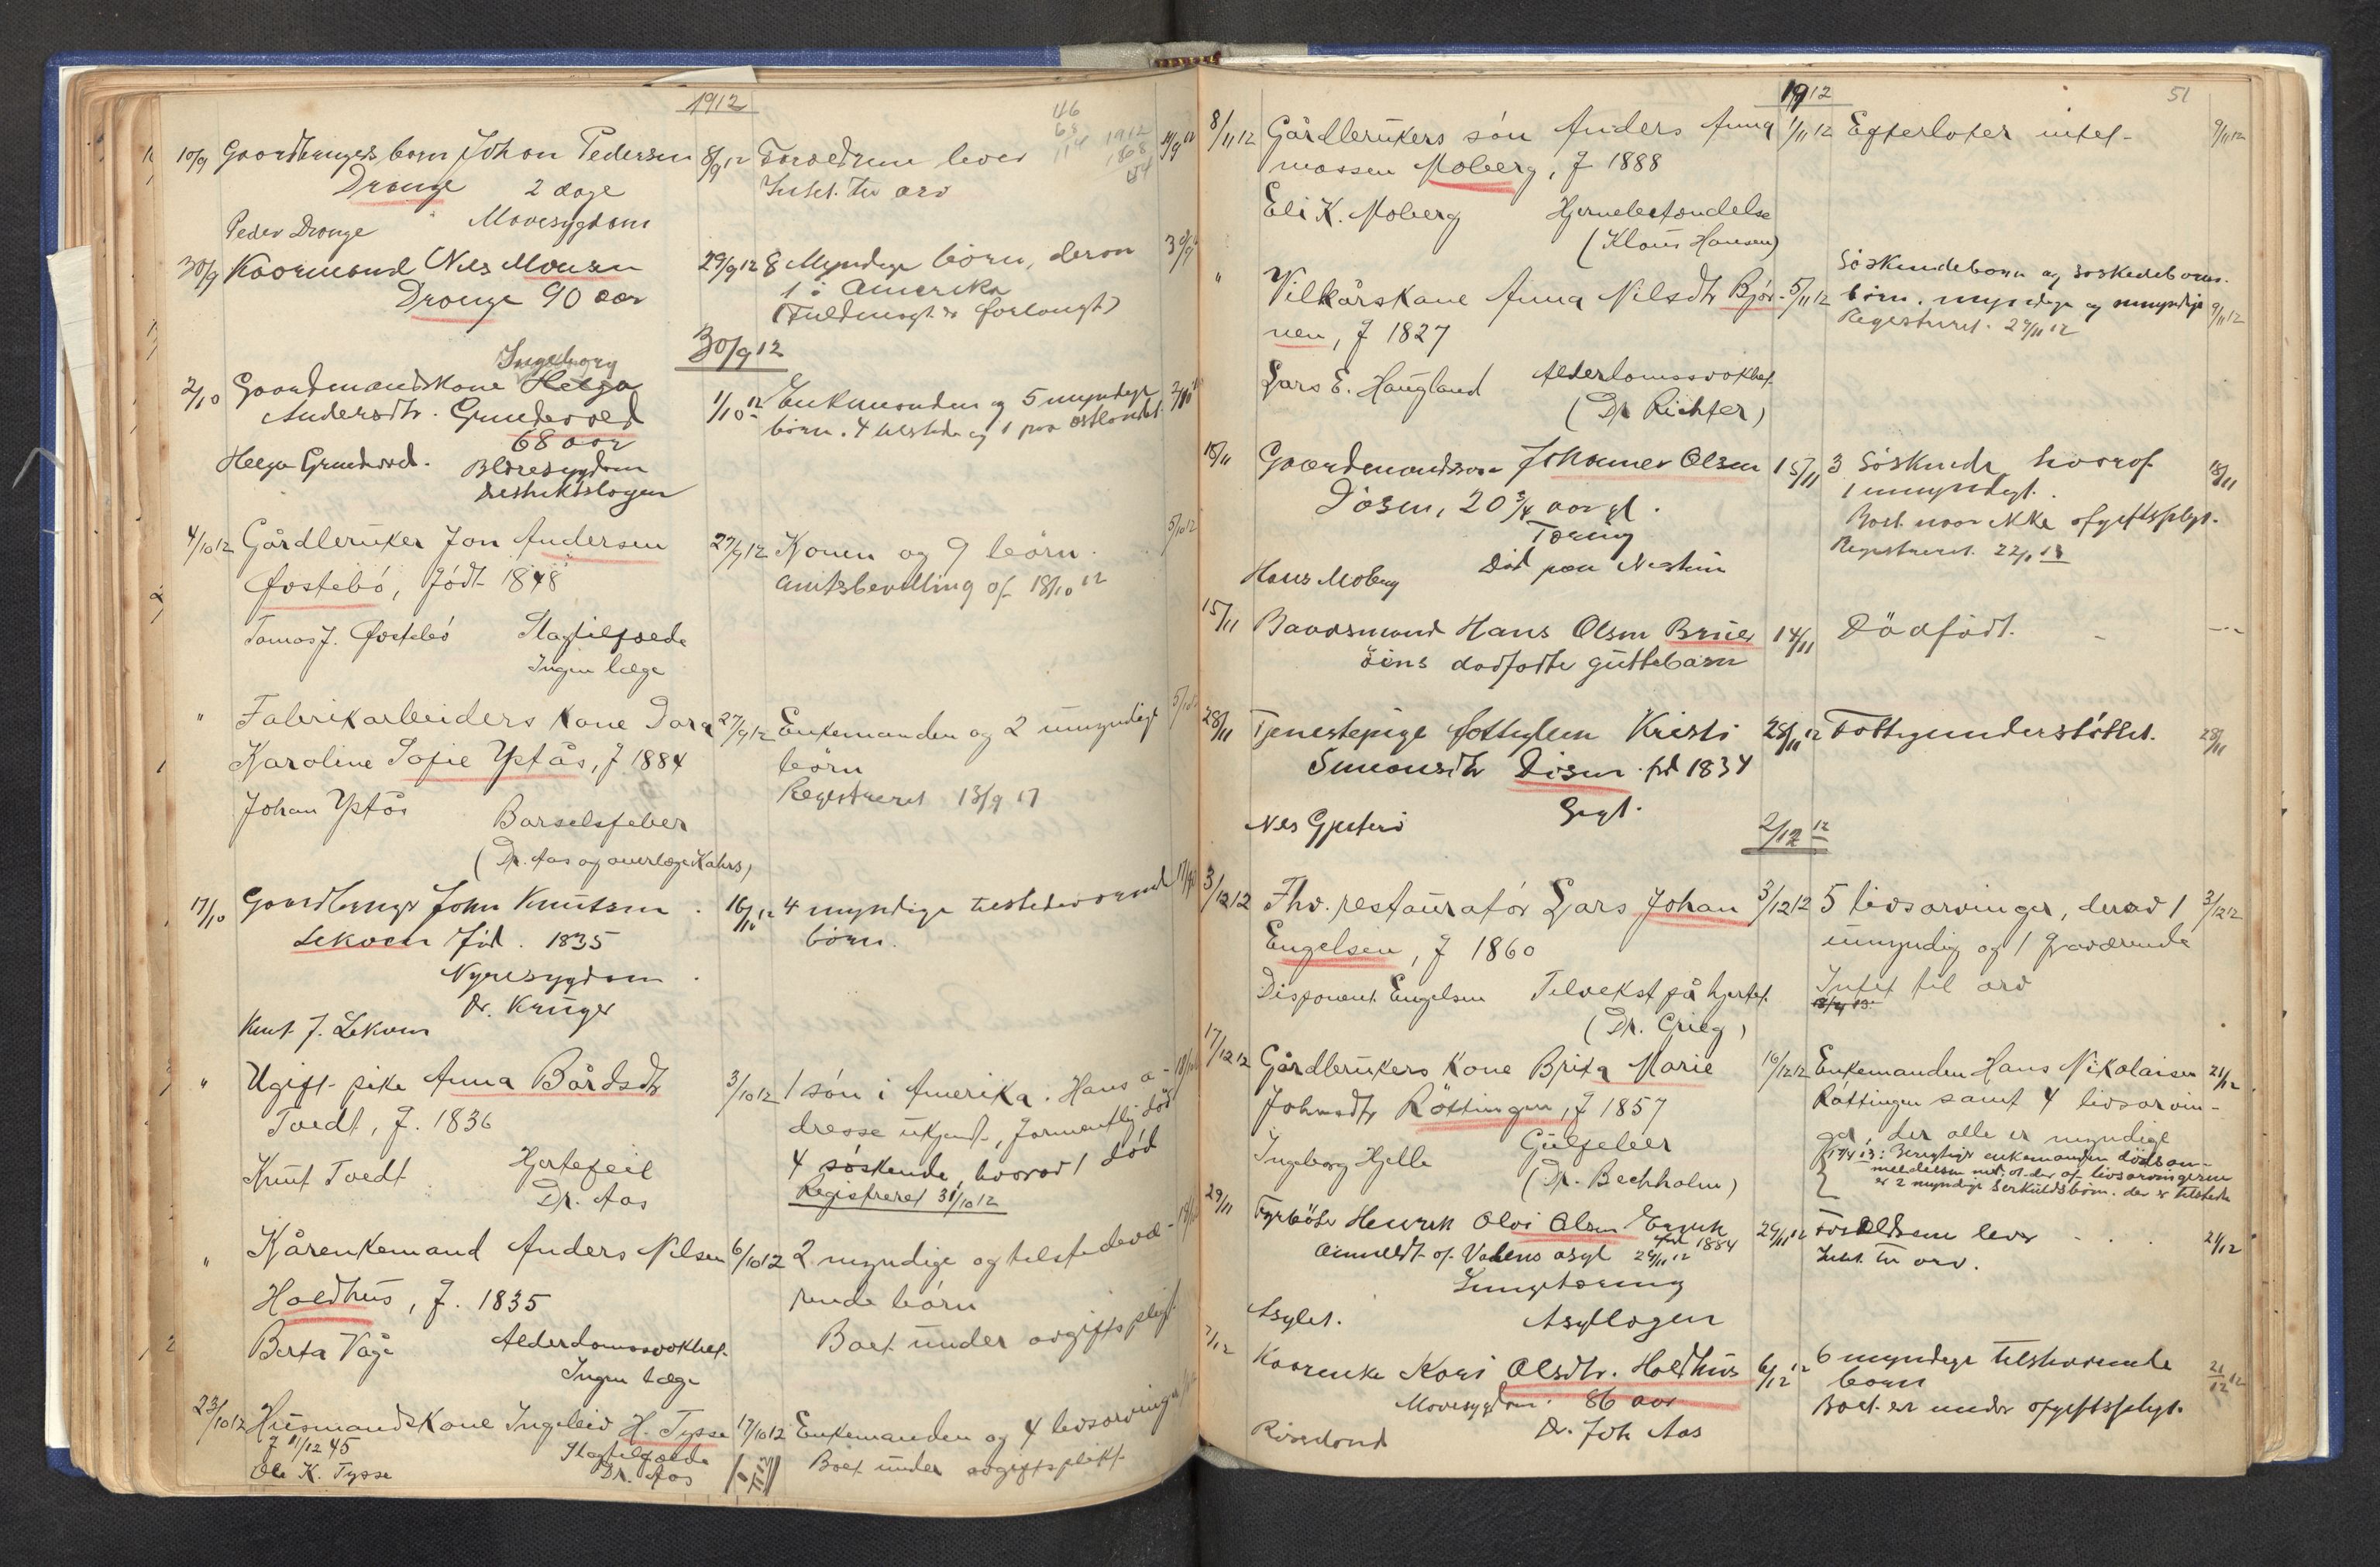 1912
46
68
114
1912
1868
44
10/9 Gaardbrugers barn Johan Pedersen 8/9 12 Forældrene lever
Drange 2 dage Intet til arv
Peder Drange Mavesygdom
30/9 Kaarmand Nils Monsen 29/9 12 8 Myndige børn, derav
Drange 90 aar 1 i Amerika
(Fuldmagt er forlangt)
30/9 12
Ingeborg
2/10 Gaardmandskone Helga 1/10 12 Enkemanden og 5 myndige
Andersdtr. Gundersved børn. 4 tilstede og 1 paa østlandet
68 aar
Helge Blæresygdom
Distriktslægen
4/10 12 Gårdbruker Jon Andersen 27/9 12 Konen og 9 børn. 5/10 12
Østebø, født 1848 Amtsbevilling af 18/10 12
Tomas J. Østebø Slagtilfælde
Ingen læge
" Fabrikarbeiders kone Dara 27/9 12 Enkemanden og 2 umyndige
Karoline Sofie Ystås, f. 1884 børn
Registreret 13/9 17
Johan Ystås Barselsfeber
(Dr. Aas og overlæge Kahrs)
17/10 Gaardbruger John Knutsen 16/10 12 4 myndige tilstedeværende
Lekven Fød. 1835 børn.
Nyresygdom
Dr. Krüger
Knut J. Lekven
" Ugift pike Anna Bårdsdtr 3/10 12 1 søn i Amerika. Hans a-
Tvedt, f. 1836 dresse ukjendt, formentlig død
4 søskende, hvorav 1 død
Knut Tvedt Hjertefeil
Registreret 31/10 12
Dr. Aas
" Kårenkemand Anders Nilsen 6/10 12 2 myndige og tilstedevæ-
Holdhus, f. 1835 rende børn
Berta Våge Alderdomssvakhet. Boet under avgiftspligt
Ingen læge
23/10 12 Husmandskone Ingebið H. Tysse 17/10 12 Enkemanden og 4 livsarvinger
f 11/12 45 Slagtilfælde Boet under avgiftsplikt
Ole K. Tysse Dr. Aas
1912
51
8/11 12 Gårdbrukers søn Anders Amg 1/11 12 Efterlater intet- 9/11 12
mossen Moberg, f 1888
Eli K. Moberg Hjernebetændelse
(Klaus Hansen)
" Vilkårskone Anna Nilsdtr Bjør- 5/11 12 Søskendebørn og søskendebørns- 9/11 12
nen, f 1827 børn. myndige og umyndige
Registreret. 27/11 12
Lars E. Haugland Alderdomssvakhet
(Dr Richter)
15/11 Gaardmandssøn Johannes Olsen 15/11 3 Søskende, hvoraf 18/11
Døsen, 20 3/4 aar gl. 1 umyndigt.
Tæring Boet naar ikke afgiftspligt.
Hans Moberg Død paa Nesttun Registreret. 22/1 13
15/11 Baadsmand Hans Olsen Bruer 14/11 Dödfödt.
øiens dødfødte guttebarn
28/11 Tjenestepige fattiglem Kristi 28/11 12 Fattigunderstøttet. 28/11
Simonsdtr Disen. fød 1834
Gigt.
2/12 12
3/12 12 Fhv. restauratør Lars Johan 3/12 12 5 livsarvinger, derav 1 3/12 12
Engelsen, f 1860 umyndig og 1 fraværende
Disponent Engelsen Tilvekst på hjertet Intet til arv
(Dr. Grieg)
17/12 12 Gårdbrukers kone Brita Marie 16/12 12 Enkemanden Hans Nikolaisen 21/12
Johnsdtr Røttingen, f 1857 Røttingen samt 4 livsarvin-
Gulfeber ger, der alle er myndige
Ingeborg Hjelle (Dr. Bechholm) 17/4 13: Berigtiger enkemanden dødsan-
meldelsen med at der af livsarvingerne
er 2 myndige Særkuldsbørn. der er tilstede
29/11 Fyrbøter Henrik Olai Olsen 29/11 12 Forældrene lever 21/12
fød 1884 Intet til arv.
Anmeldt af Vabens asyl 29/11 12
Lungetæring
Asylet. Asyllægen
7/12 Kaarenke Kari Olsdtr. Holdhus 6/12 12 6 myndige tilstedeværende 21/12 12
Mavesygdom. 86 aar børn
Dr. Joh Aas Boet er under afgiftspligt.